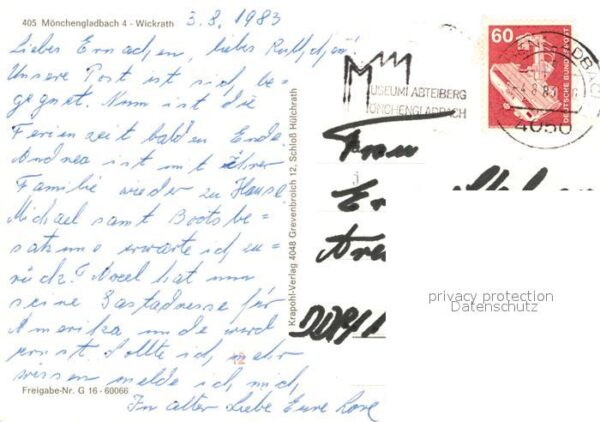 405 Mönchengladbach 4 - Wickrath
3.8.1983
Liebes Ernachen, liebes
Unsere Post ist sich be=
gegnet. Nun ist die
Ferienzeit bald zu Ende
Andrea ist mit ihrer
Familie wieder zu Hause
Michael samt Bootsbe=
satzung erwarte ich zu=
rück.
seine Gastadresse für
Amerika
ernst. Sollte ich mehr
wissen melde ich mich
In alter Liebe Eure
Freigabe-Nr. G 16 - 60066
Krapohl-Verlag 4048 Grevenbroich 12, Schloß Hülchrath
MUSEUM ABTEIBERG
MÖNCHENGLADBACH
60
DEUTSCHE BUNDESPOST
4050
Frau
privacy protection
Datenschutz